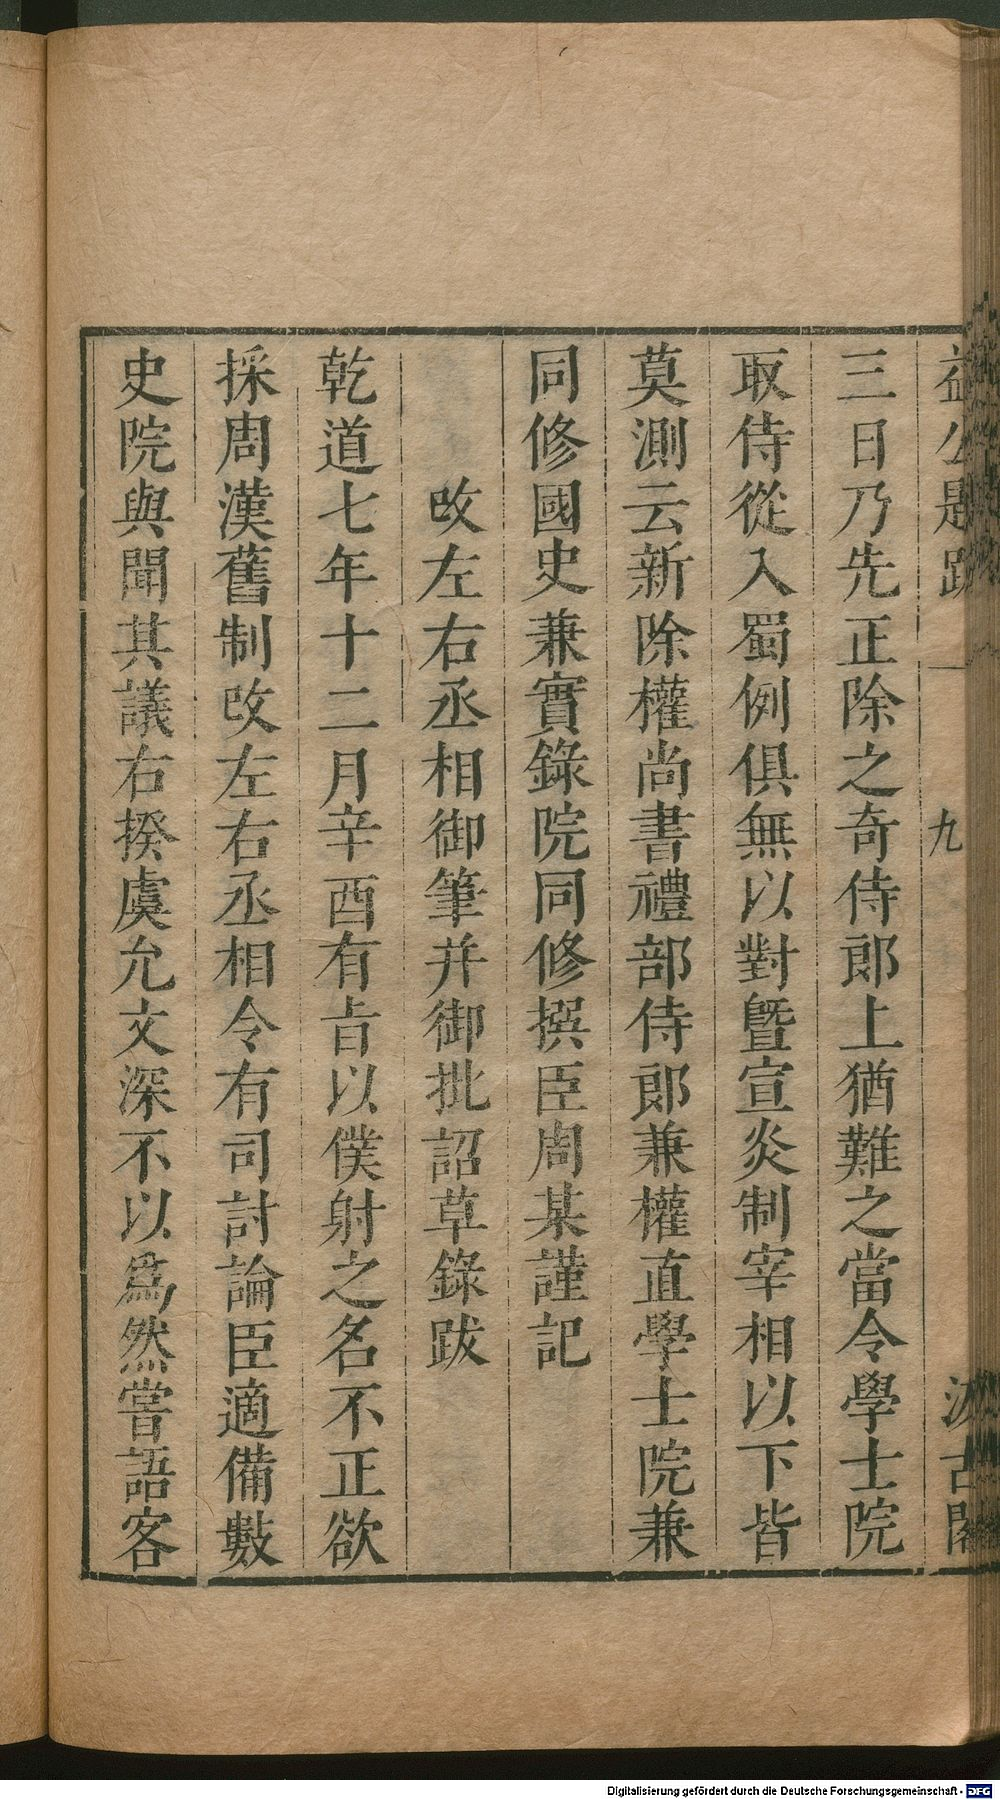 益公題跋 一 九 汲古閣
三日乃先正除之奇侍郎上猶難之當令學士院
取侍從入蜀例俱無以對曁宣炎制宰相以下皆
莫測云新除權尚書禮部侍郎兼權直學士院兼
同修國史兼實錄院同修撰臣周某謹記
攺左右丞相御筆并御批詔草錄跋
乾道七年十二月辛酉有㫖以僕射之名不正欲
採周漢舊制攺左右丞相令有司討論臣適備數
史院與聞其議右揆虞允文深不以爲然嘗語客
Digitalisierung gefördert durch die Deutsche Forschungsgemeinschaft - DFG